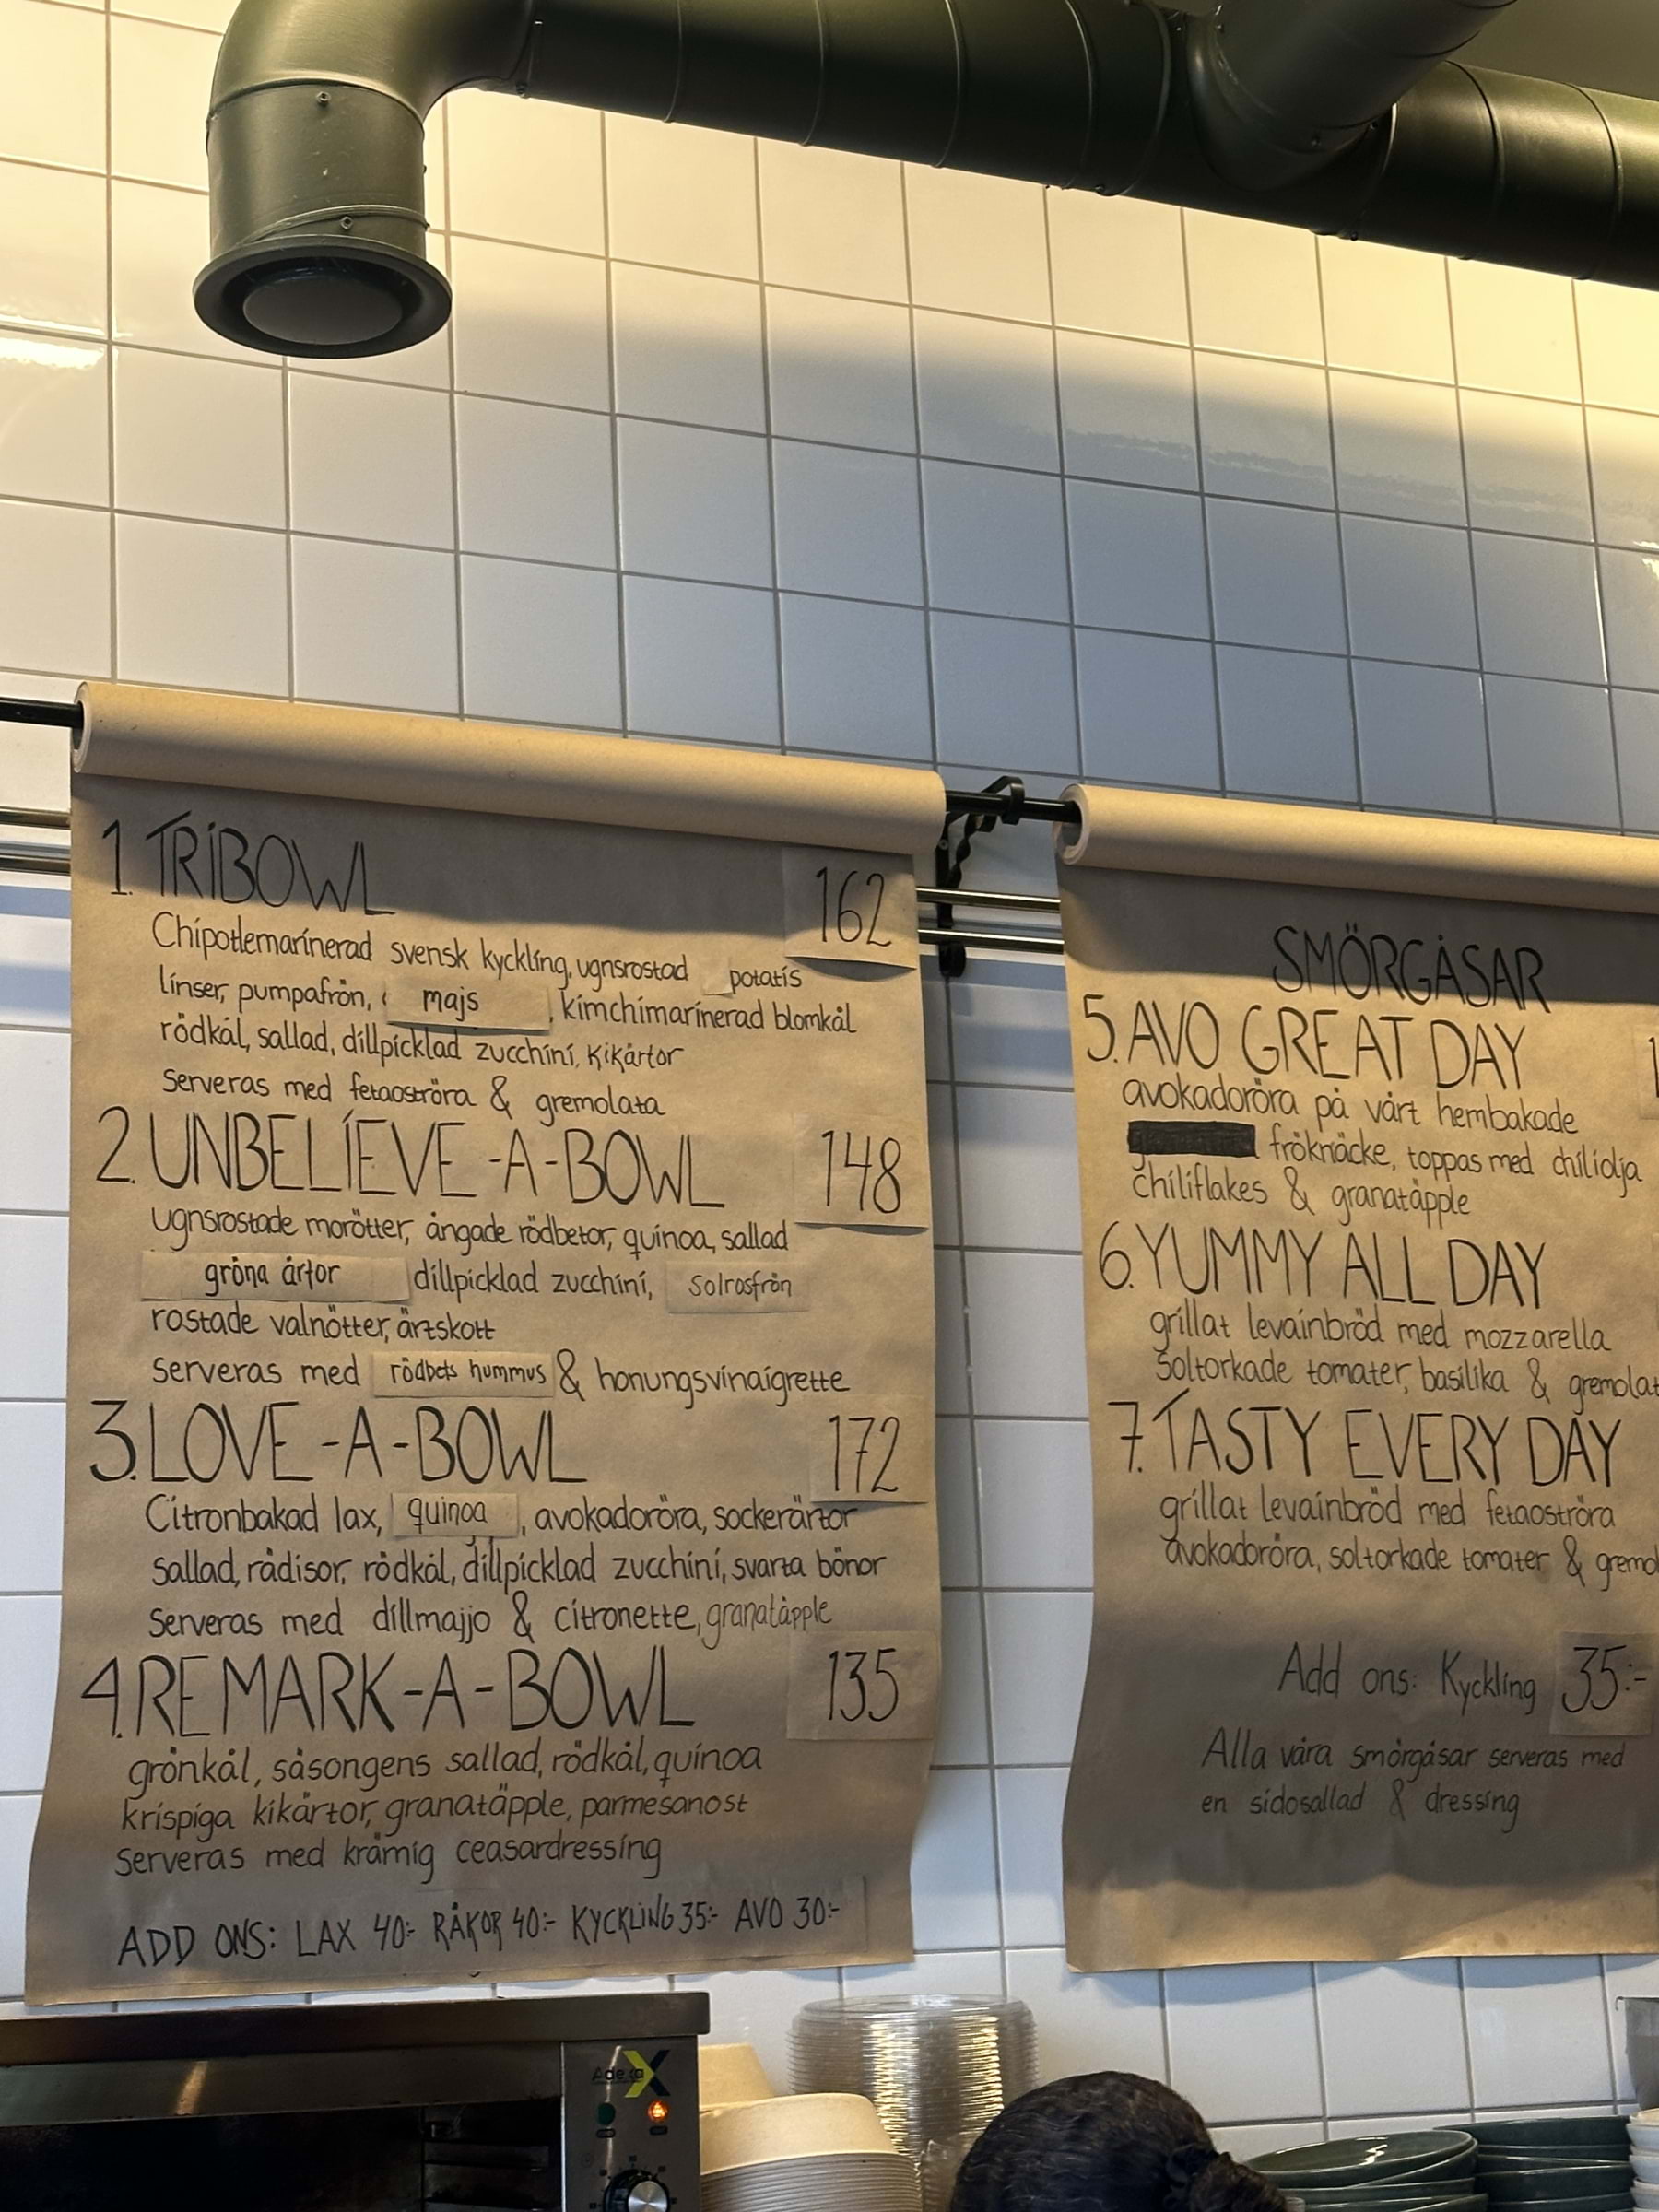 1. TRIBOWL 162
Chipotlemarinerad svensk kyckling, ugnsrostad potatis
linser, pumpafrön, majs, kimchimarinerad blomkål
rödkål, sallad, dillpicklad zucchini, kikärtor
Serveras med fetaoströra & gremolata
2. UNBELIEVE-A-BOWL 148
ugnsrostade morötter, ångade rödbetor, quinoa, sallad
gröna ärtor dillpicklad zucchini, solrosfrön
rostade valnötter, ärtskott
serveras med rödbets hummus & honungsvinaigrette
3. LOVE-A-BOWL 172
Citronbakad lax, quinoa, avokadoröra, sockerärtor
sallad, rädisor, rödkål, dillpicklad zucchini, svarta bönor
Serveras med dillmajjo & citronette, granatäpple
4. REMARK-A-BOWL 135
grönkål, säsongens sallad, rödkål, quinoa
krispiga kikärtor, granatäpple, parmesanost
Serveras med krämig ceasardressing
ADD ONS: LAX 40:- RÄKOR 40:- KYCKLING 35:- AVO 30:-
SMÖRGÅSAR
5. AVO GREAT DAY
avokadoröra på vårt hembakade
fröknäcke, toppas med chiliolja
chiliflakes & granatäpple
6. YUMMY ALL DAY
grillat levainbröd med mozzarella
soltorkade tomater, basilika & gremolat
7. TASTY EVERY DAY
grillat levainbröd med fetaoströra
avokadoröra, soltorkade tomater & gremo
Add ons: Kyckling 35:-
Alla våra smörgåsar serveras med
en sidosallad & dressing